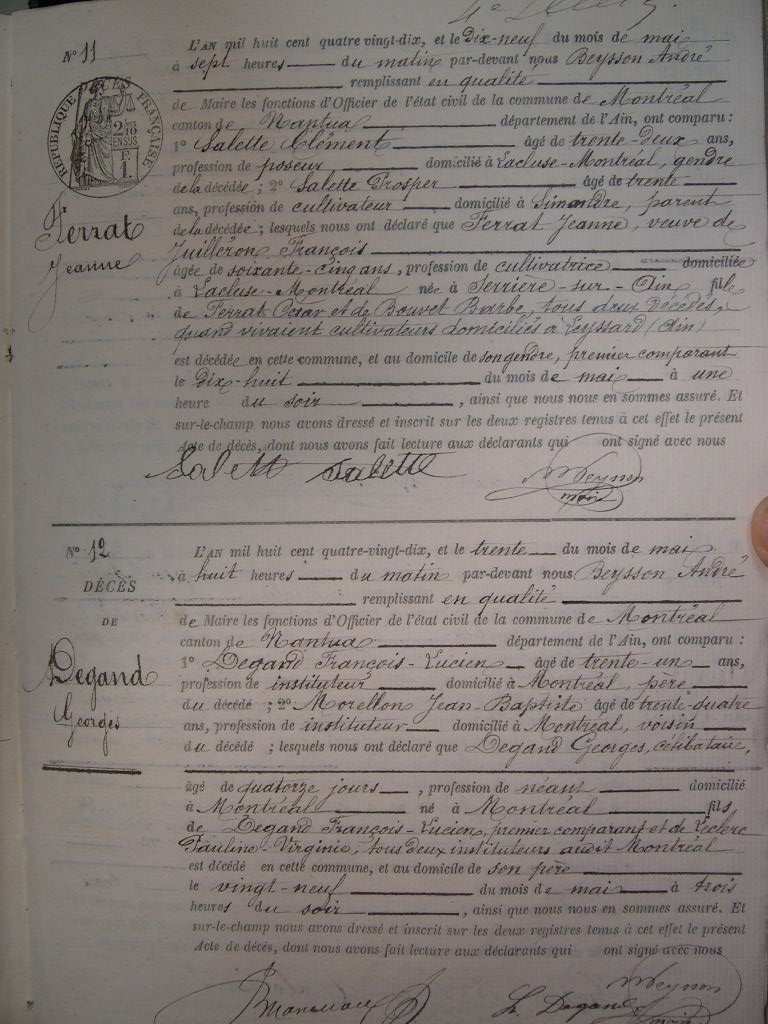 N° 11
L'AN mil huit cent quatre vingt-dix, et le Dix-neuf du mois de mai
à sept heures du matin par-devant nous Beysson André
remplissant en qualité
de Maire les fonctions d'Officier de l'état civil de la commune de Montréal
canton de Nantua département de l'Ain, ont comparu :
1° Salette Clément âgé de trente-deux ans,
profession de poseur domicilié à Lacluse-Montréal, gendre
de la décédée ; 2° Salette Prosper âgé de trente
ans, profession de cultivateur domicilié à Simandre, parent
de la décédée ; lesquels nous ont déclaré que Ferrat Jeanne, veuve de
Juilleron François
âgée de soixante-cinq ans, profession de cultivatrice domiciliée
à Lacluse-Montréal née à Serrière-sur-Ain fille
de Ferrat César et de Bouvet Barbe, tous deux décédés,
quand vivaient cultivateurs domiciliés à Leyssard (Ain)
est décédée en cette commune, et au domicile de son gendre, premier comparant
le Dix-huit du mois de mai à une
heure du soir , ainsi que nous nous en sommes assuré. Et
sur-le-champ nous avons dressé et inscrit sur les deux registres tenus à cet effet le présent
Acte de décès, dont nous avons fait lecture aux déclarants qui ont signé avec nous
RÉPUBLIQUE FRANÇAISE
2/10 EN SUS
1 F.
Ferrat
Jeanne
Salette Salette
maire
N° 12
DÉCÈS
DE
Degand
Georges
L'AN mil huit cent quatre-vingt-dix, et le trente du mois de mai
à huit heures du matin par-devant nous Beysson André
remplissant en qualité
de Maire les fonctions d'Officier de l'état civil de la commune de Montréal
canton de Nantua département de l'Ain, ont comparu :
1° Degand François-Lucien âgé de trente-un ans,
profession de instituteur domicilié à Montréal, père
du décédé ; 2° Morellon Jean-Baptiste âgé de trente-quatre
ans, profession de instituteur domicilié à Montréal, voisin
du décédé ; lesquels nous ont déclaré que Degand Georges, célibataire,
âgé de quatorze jours , profession de néant domicilié
à Montréal né à Montréal fils
de Degand François-Lucien, premier comparant et de Leclerc
Pauline-Virginie, tous deux instituteurs audit Montréal
est décédé en cette commune, et au domicile de son père
le vingt-neuf du mois de mai à trois
heures du soir , ainsi que nous nous en sommes assuré. Et
sur-le-champ nous avons dressé et inscrit sur les deux registres tenus à cet effet le présent
Acte de décès, dont nous avons fait lecture aux déclarants qui ont signé avec nous
L. Degand
maire